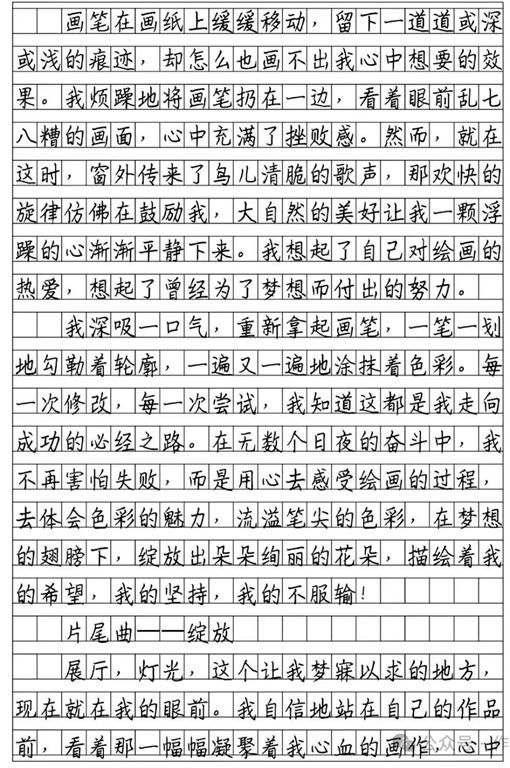 画笔在画纸上缓缓移动，留下一道道或深
或浅的痕迹，却怎么也画不出我心中想要的效
果。我烦躁地将画笔扔在一边，看着眼前乱七
八糟的画面，心中充满了挫败感。然而，就在
这时，窗外传来了鸟儿清脆的歌声，那欢快的
旋律仿佛在鼓励我，大自然的美好让我一颗浮
躁的心渐渐平静下来。我想起了自己对绘画的
热爱，想起了曾经为了梦想而付出的努力。
我深吸一口气，重新拿起画笔，一笔一划
地勾勒着轮廓，一遍又一遍地涂抹着色彩。每
一次修改，每一次尝试，我知道这都是我走向
成功的必经之路。在无数个日夜的奋斗中，我
不再害怕失败，而是用心去感受绘画的过程，
去体会色彩的魅力，流溢笔尖的色彩，在梦想
的翅膀下，绽放出朵朵绚丽的花朵，描绘着我
的希望，我的坚持，我的不服输！
片尾曲——绽放
展厅，灯光，这个让我梦寐以求的地方，
现在就在我的眼前。我自信地站在自己的作品
前，看着那一幅幅凝聚着我心血的画作，心中
公众号